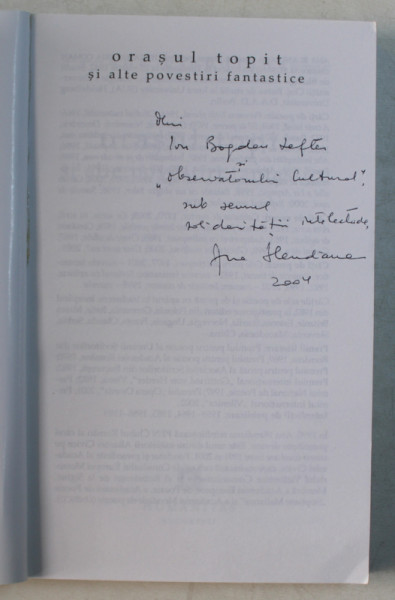 orașul topit
și alte povestiri fantastice
Dlui
Ion Bogdan Lefter
și
"Observatorului Cultural",
sub semnul
solidarității intelectuale,
Ana Blandiana
2004